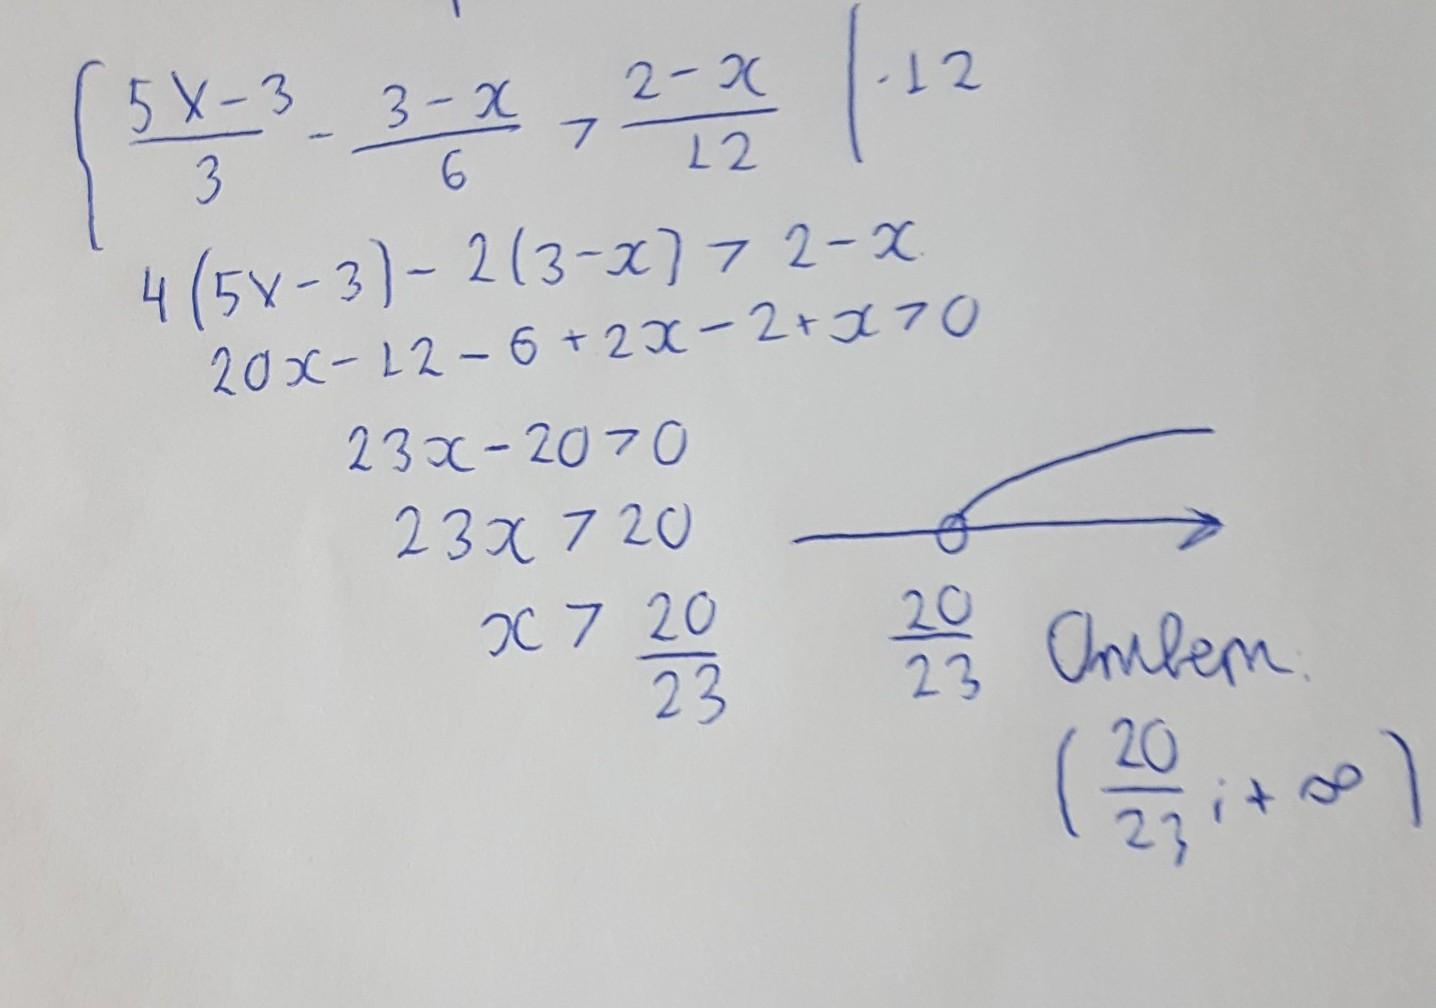 { (5x-3)/3 - (3-x)/6 > (2-x)/12 | ·12
4(5x-3)- 2(3-x) > 2-x
20x-12-6+2x-2+x>0
23x-20>0
23x > 20
x > 20/23
20/23
Ответ.
(20/23; +∞)